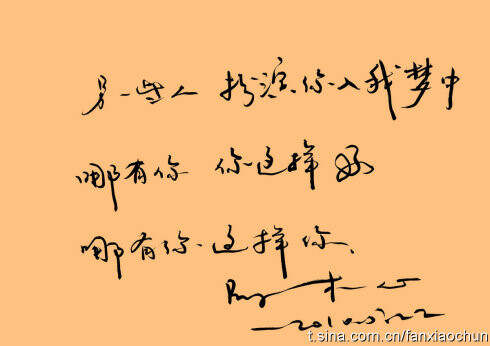 另一些人 扮演你入我梦中
哪有你 你这样好
哪有你这样你、
By 木心
—2010.5.22
t.sina.com.cn/fanxiaochun